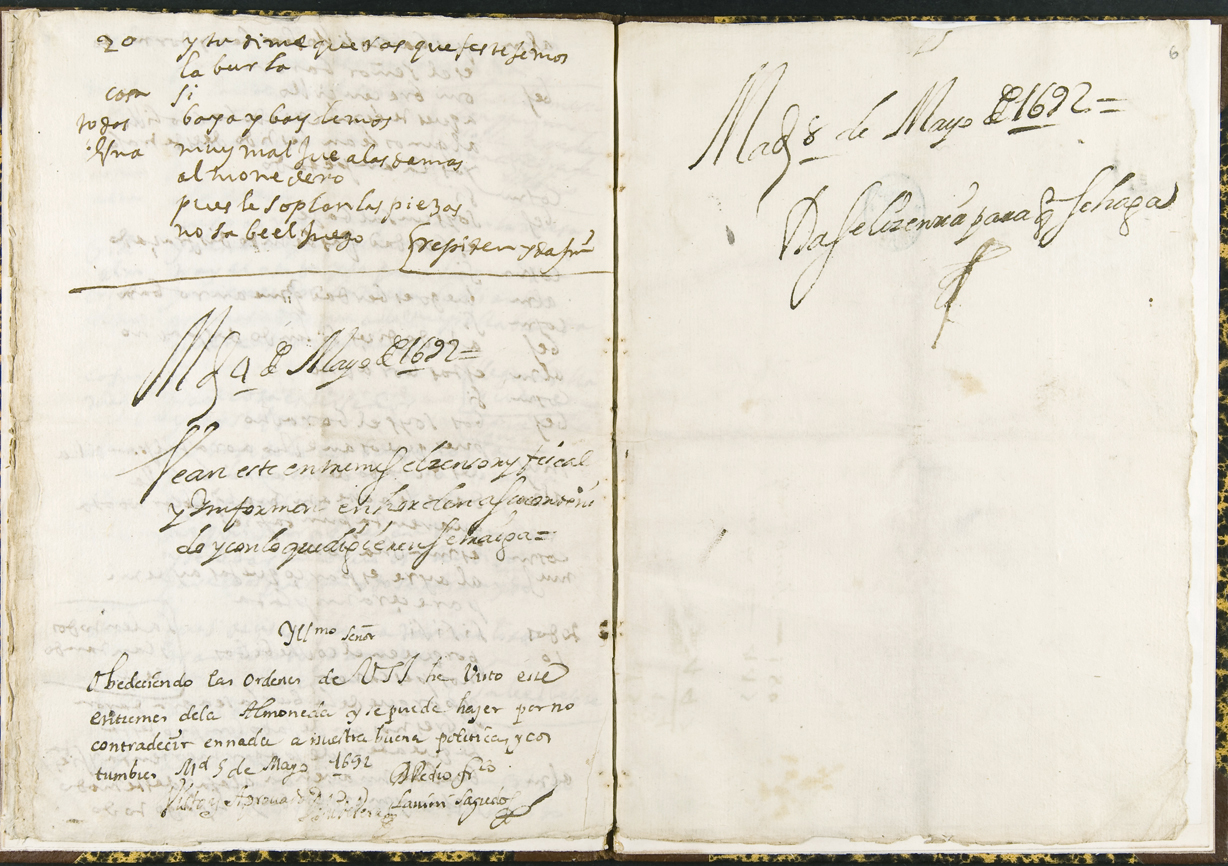 20 y tu dime queras que festejemos
la burla
cosm si
todos baya y baylemos
Una muy mal fue a las damas
almonedero
pues le soplan las piezas
no sabe el juego (repiten y da fin
Md 4 de Mayo de 1692=
Vean este entremes el zensor y fiscal
y Ynformen en horden a su conteni
do y con lo que digeren se traiga=
Yllmo Señor
Obedeciendo las ordenes de VSI he Visto este
entremes dela Almoneda y se puede hazer por no
contradecir en nada a nuestra buena politica, y cos
tumbres Md 5 de Mayo 1692 Dn Pedro frco
Lanini Sagredo
Visto y Aprouado
6
Mad 8 de Mayo de 1692=
Dase lizenzia para q se haga